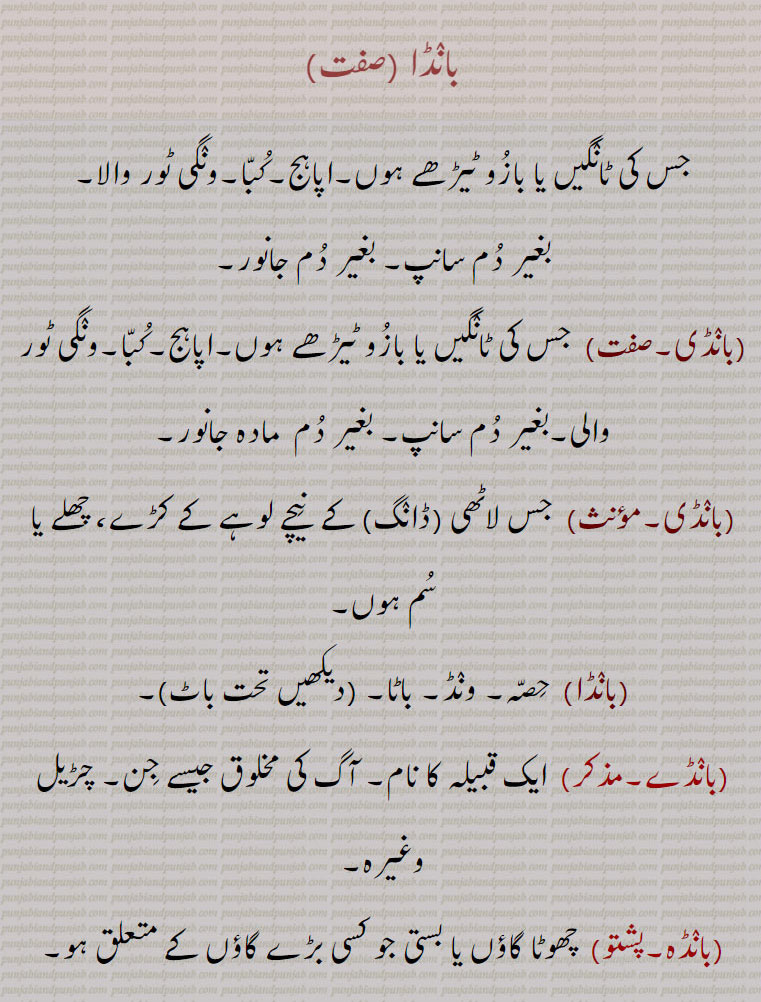 بانْڈا (صفت)
جس کی ٹانگیں یا بازُو ٹیڑھے ہوں۔اپاہج۔کُبّا۔ونْگی ٹور والا۔
بغیر دُم سانپ۔ بغیر دُم جانور۔
(بانْڈی۔صفت) جس کی ٹانگیں یا بازُو ٹیڑھے ہوں۔اپاہج۔کُبّا۔ونْگی ٹور
والی۔بغیر دُم سانپ۔ بغیر دُم مادہ جانور۔
(بانْڈی۔مؤنث) جس لاٹھی (ڈانْگ) کے نیچے لوہے کے کڑے، چھلے یا
سُم ہوں۔
(بانْڈا) حِصّہ۔ ونْڈ۔ باٹا۔ (دیکھیں تحت باٹ)۔
(بانْڈے۔مذکر) ایک قبیلہ کا نام۔ آگ کی مخلوق جیسے جِن۔ چڑیل
وغیرہ۔
(بانْڈہ۔پشتو) چھوٹا گاؤں یا بستی جو کسی بڑے گاؤں کے متعلق ہو۔